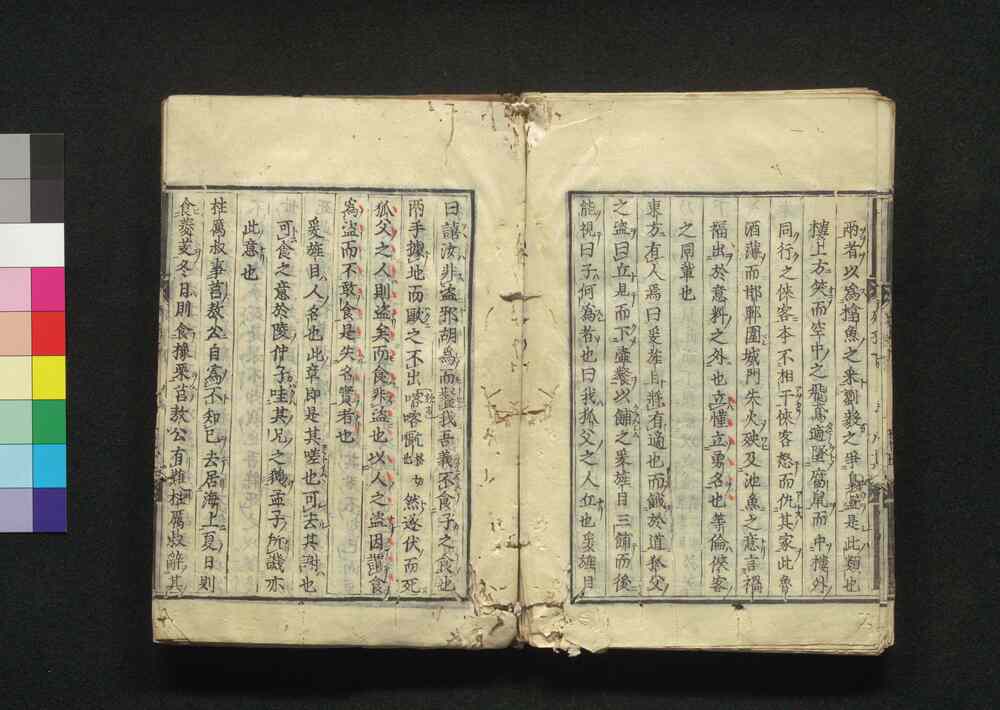 兩者以為擋魚之来劉毅之爭是此類也
樓上方笑而空中之飛鳶適墜腐鼠而中樓外
同行之俠客本不相干俠客怒而仇其家此魯
酒薄而邯鄲圍城門失火殃及池魚之意言禍
福出於意料之外也立慬立勇名也等倫俠客
之同輩也
東方有人焉曰爰旌目將有適也而餓於道狐父
之盗曰丘見而下壷飡以餔之爰旌目三餔而後
能視曰子何為者也曰我狐父之人丘也爰旌目
曰譆汝非盗邪胡為而飡我吾義不食子之食也
兩手據地而歐之不出喀喀然遂伏而死
狐父之人則盗矣而食非盗也以人之盗因謂食
為盗而不敢食是失名實者也
爰旌目人名也此章即是其嗟也可去其謝也
可食之意於陵仲子哇其兄之鵝孟子所譏亦
此意也
柱厲叔事莒敖公自為不知己去居海上夏日則
食菱芰冬日則食橡栗莒敖公有難柱厲叔辭其